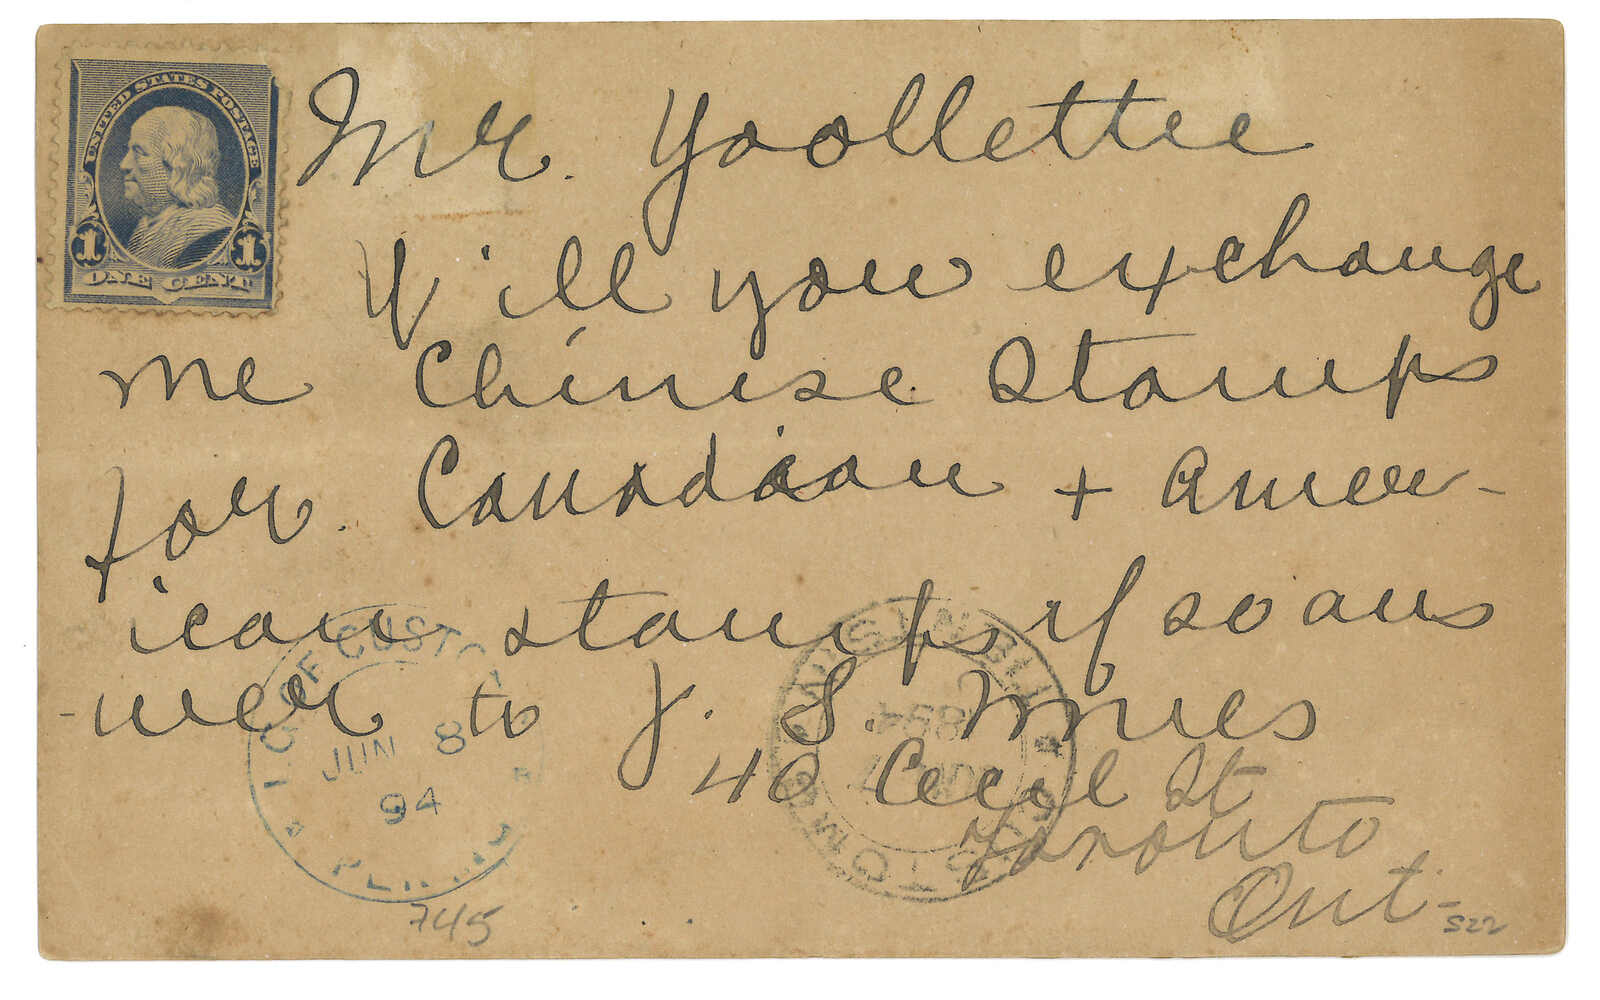 UNITED STATES POSTAGE
1 1
ONE CENT
Mr. Yoollettee
Will you exchange
me Chinese Stamps
for. Canadian + Amer-
ican stamps if so ans
-wer to J. S. Innes
40 Cecil St
Toronto
Ont-
I. G. OF CUSTO
JUN 8
94
CUSTOM
745
S22